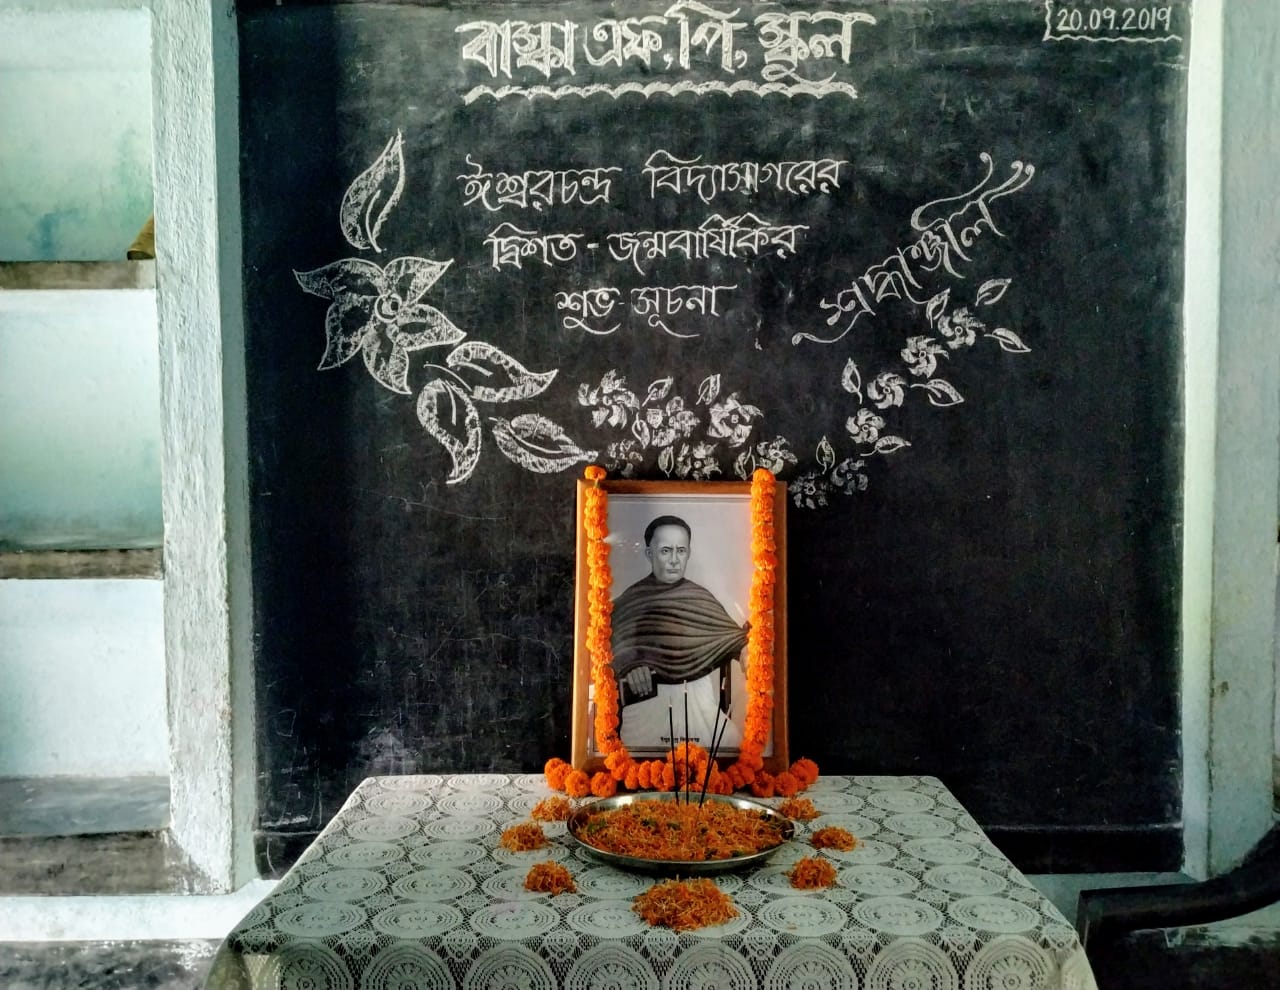 বাস্কা এফ. পি. স্কুল
20.09.2019
ঈশ্বরচন্দ্র বিদ্যাসাগরের
দ্বিশত - জন্মবার্ষিকির
শুভ-সূচনা
শ্রদ্ধাঞ্জলি